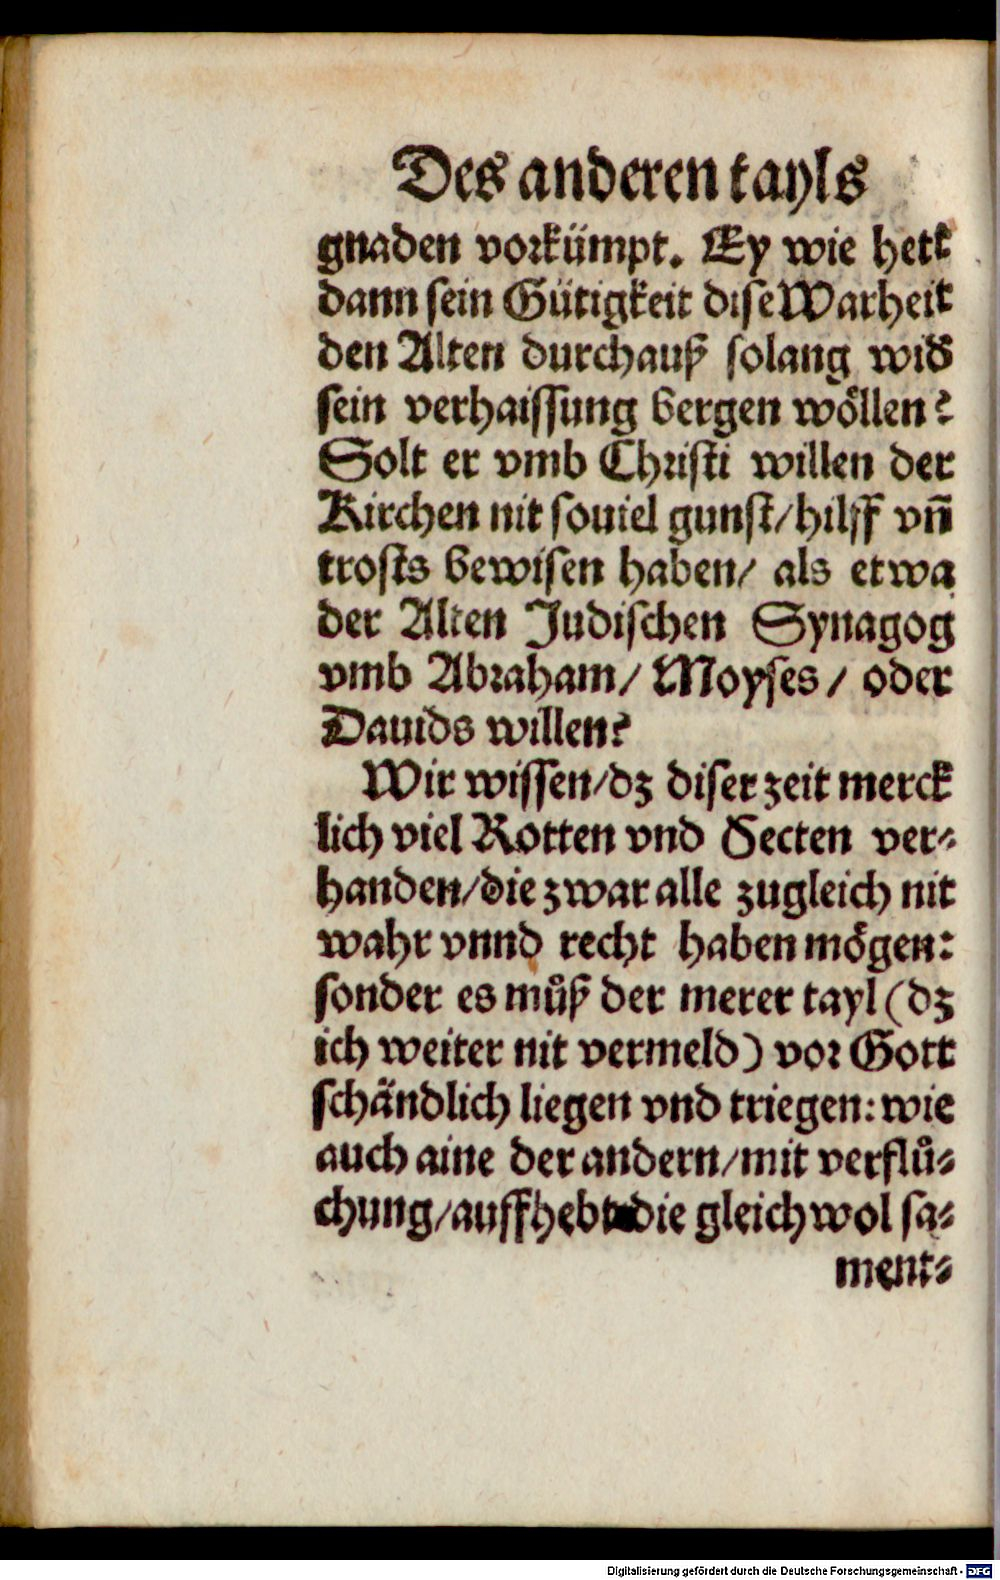 Des anderen tayls
gnaden vorkümpt. Ey wie hett
dann sein Gütigkeit dise Warheit
den Alten durchauß solang wid̄
sein verhaissung bergen wöllen?
Solt er vmb Christi willen der
Kirchen nit souiel gunst/hilff vñ
trosts bewisen haben/ als etwa
der Alten Judischen Synagog
vmb Abraham/ Moyses/ oder
Dauids willen?
Wir wissen/dz diser zeit merck
lich viel Rotten vnd Secten ver⸗
handen/die zwar alle zugleich nit
wahr vnnd recht haben mögen:
sonder es můß der merer tayl (dz
ich weiter nit vermeld) vor Gott
schändlich liegen vnd triegen: wie
auch aine der andern/mit verflů⸗
chung/auffhebt die gleichwol sa⸗
ment⸗
Digitalisierung gefördert durch die Deutsche Forschungsgemeinschaft - DFG